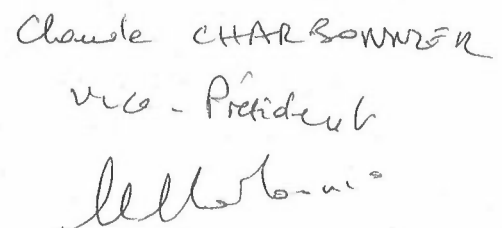 Claude CHARBONNIER
Vice-Président